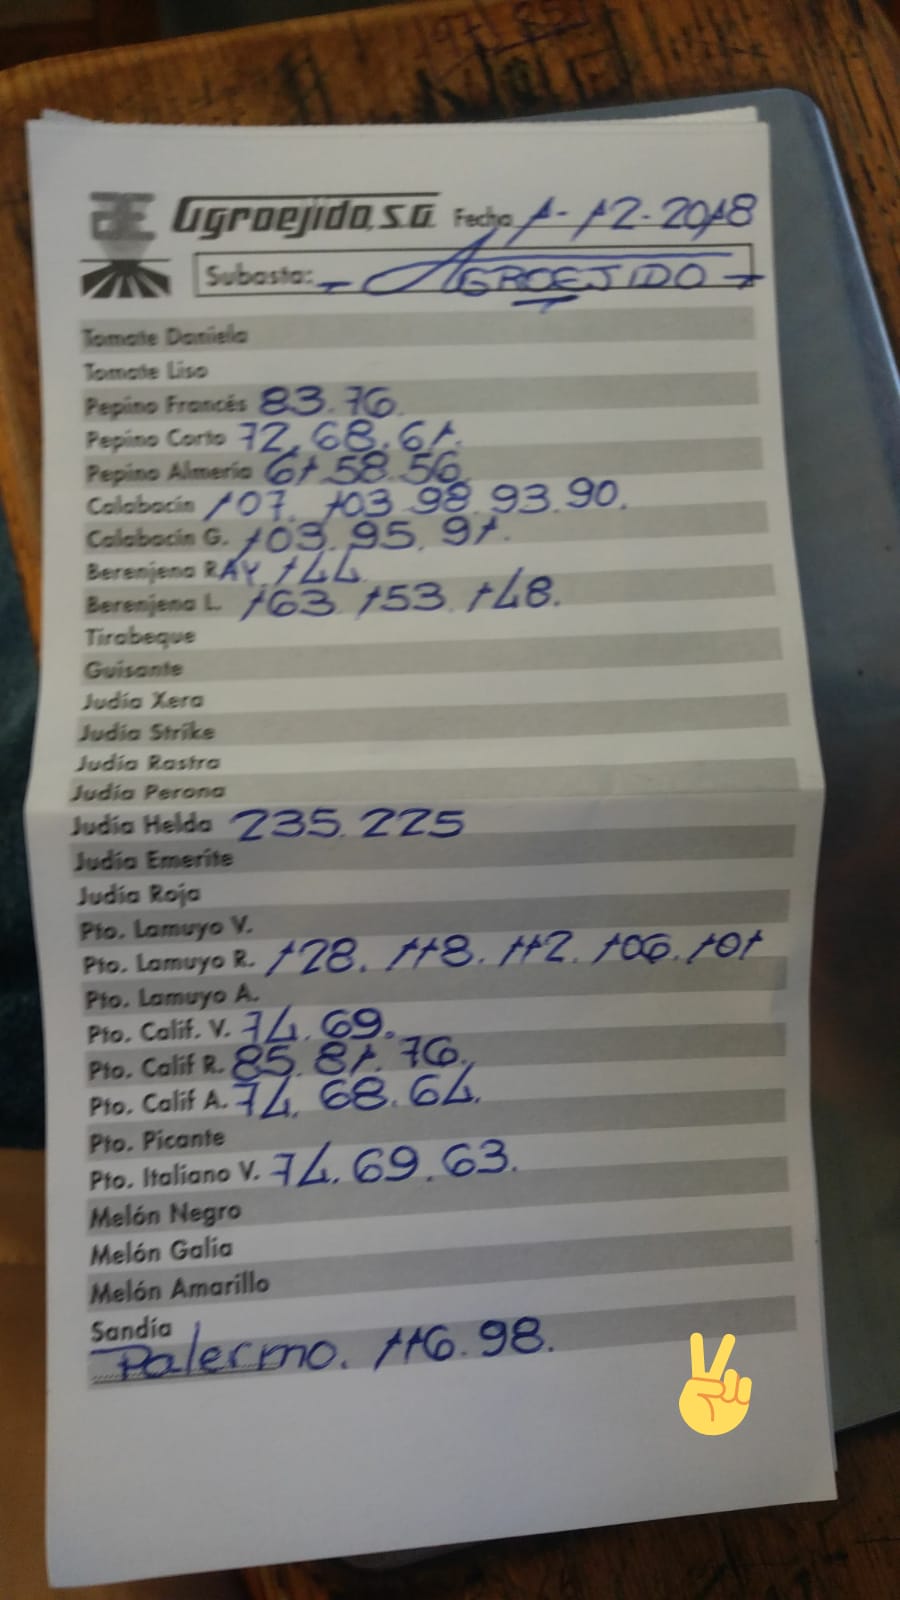 AE Agroejido, S.A. Fecha 1-12-2018
Subasta: - AGROEJIDO -
Tomate Daniela
Tomate Liso
Pepino Francés 83.76.
Pepino Corto 72.68.61.
Pepino Almería 61.58.56.
Calabacín 107. 103.98.93.90.
Calabacín G. 103.95.91.
Berenjena RAY. 144.
Berenjena L. 163. 153. 148.
Tirabeque
Guisante
Judía Xera
Judía Strike
Judía Rastra
Judía Perona
Judía Helda 235.225
Judía Emerite
Judía Roja
Pto. Lamuyo V.
Pto. Lamuyo R. 128. 118. 112. 106. 101
Pto. Lamuyo A.
Pto. Calif. V. 74.69.
Pto. Calif R. 85. 81. 76.
Pto. Calif A. 74. 68.64.
Pto. Picante
Pto. Italiano V. 74.69.63.
Melón Negro
Melón Galia
Melón Amarillo
Sandía
Palermo. 116.98.